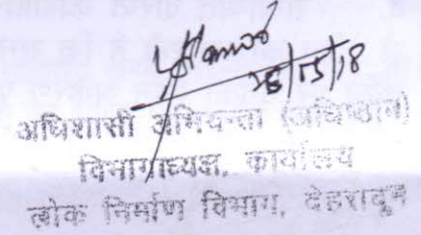 अधिशासी अभियन्ता (अधिष्ठान)
विभागाध्यक्ष, कार्यालय
लोक निर्माण विभाग, देहरादून